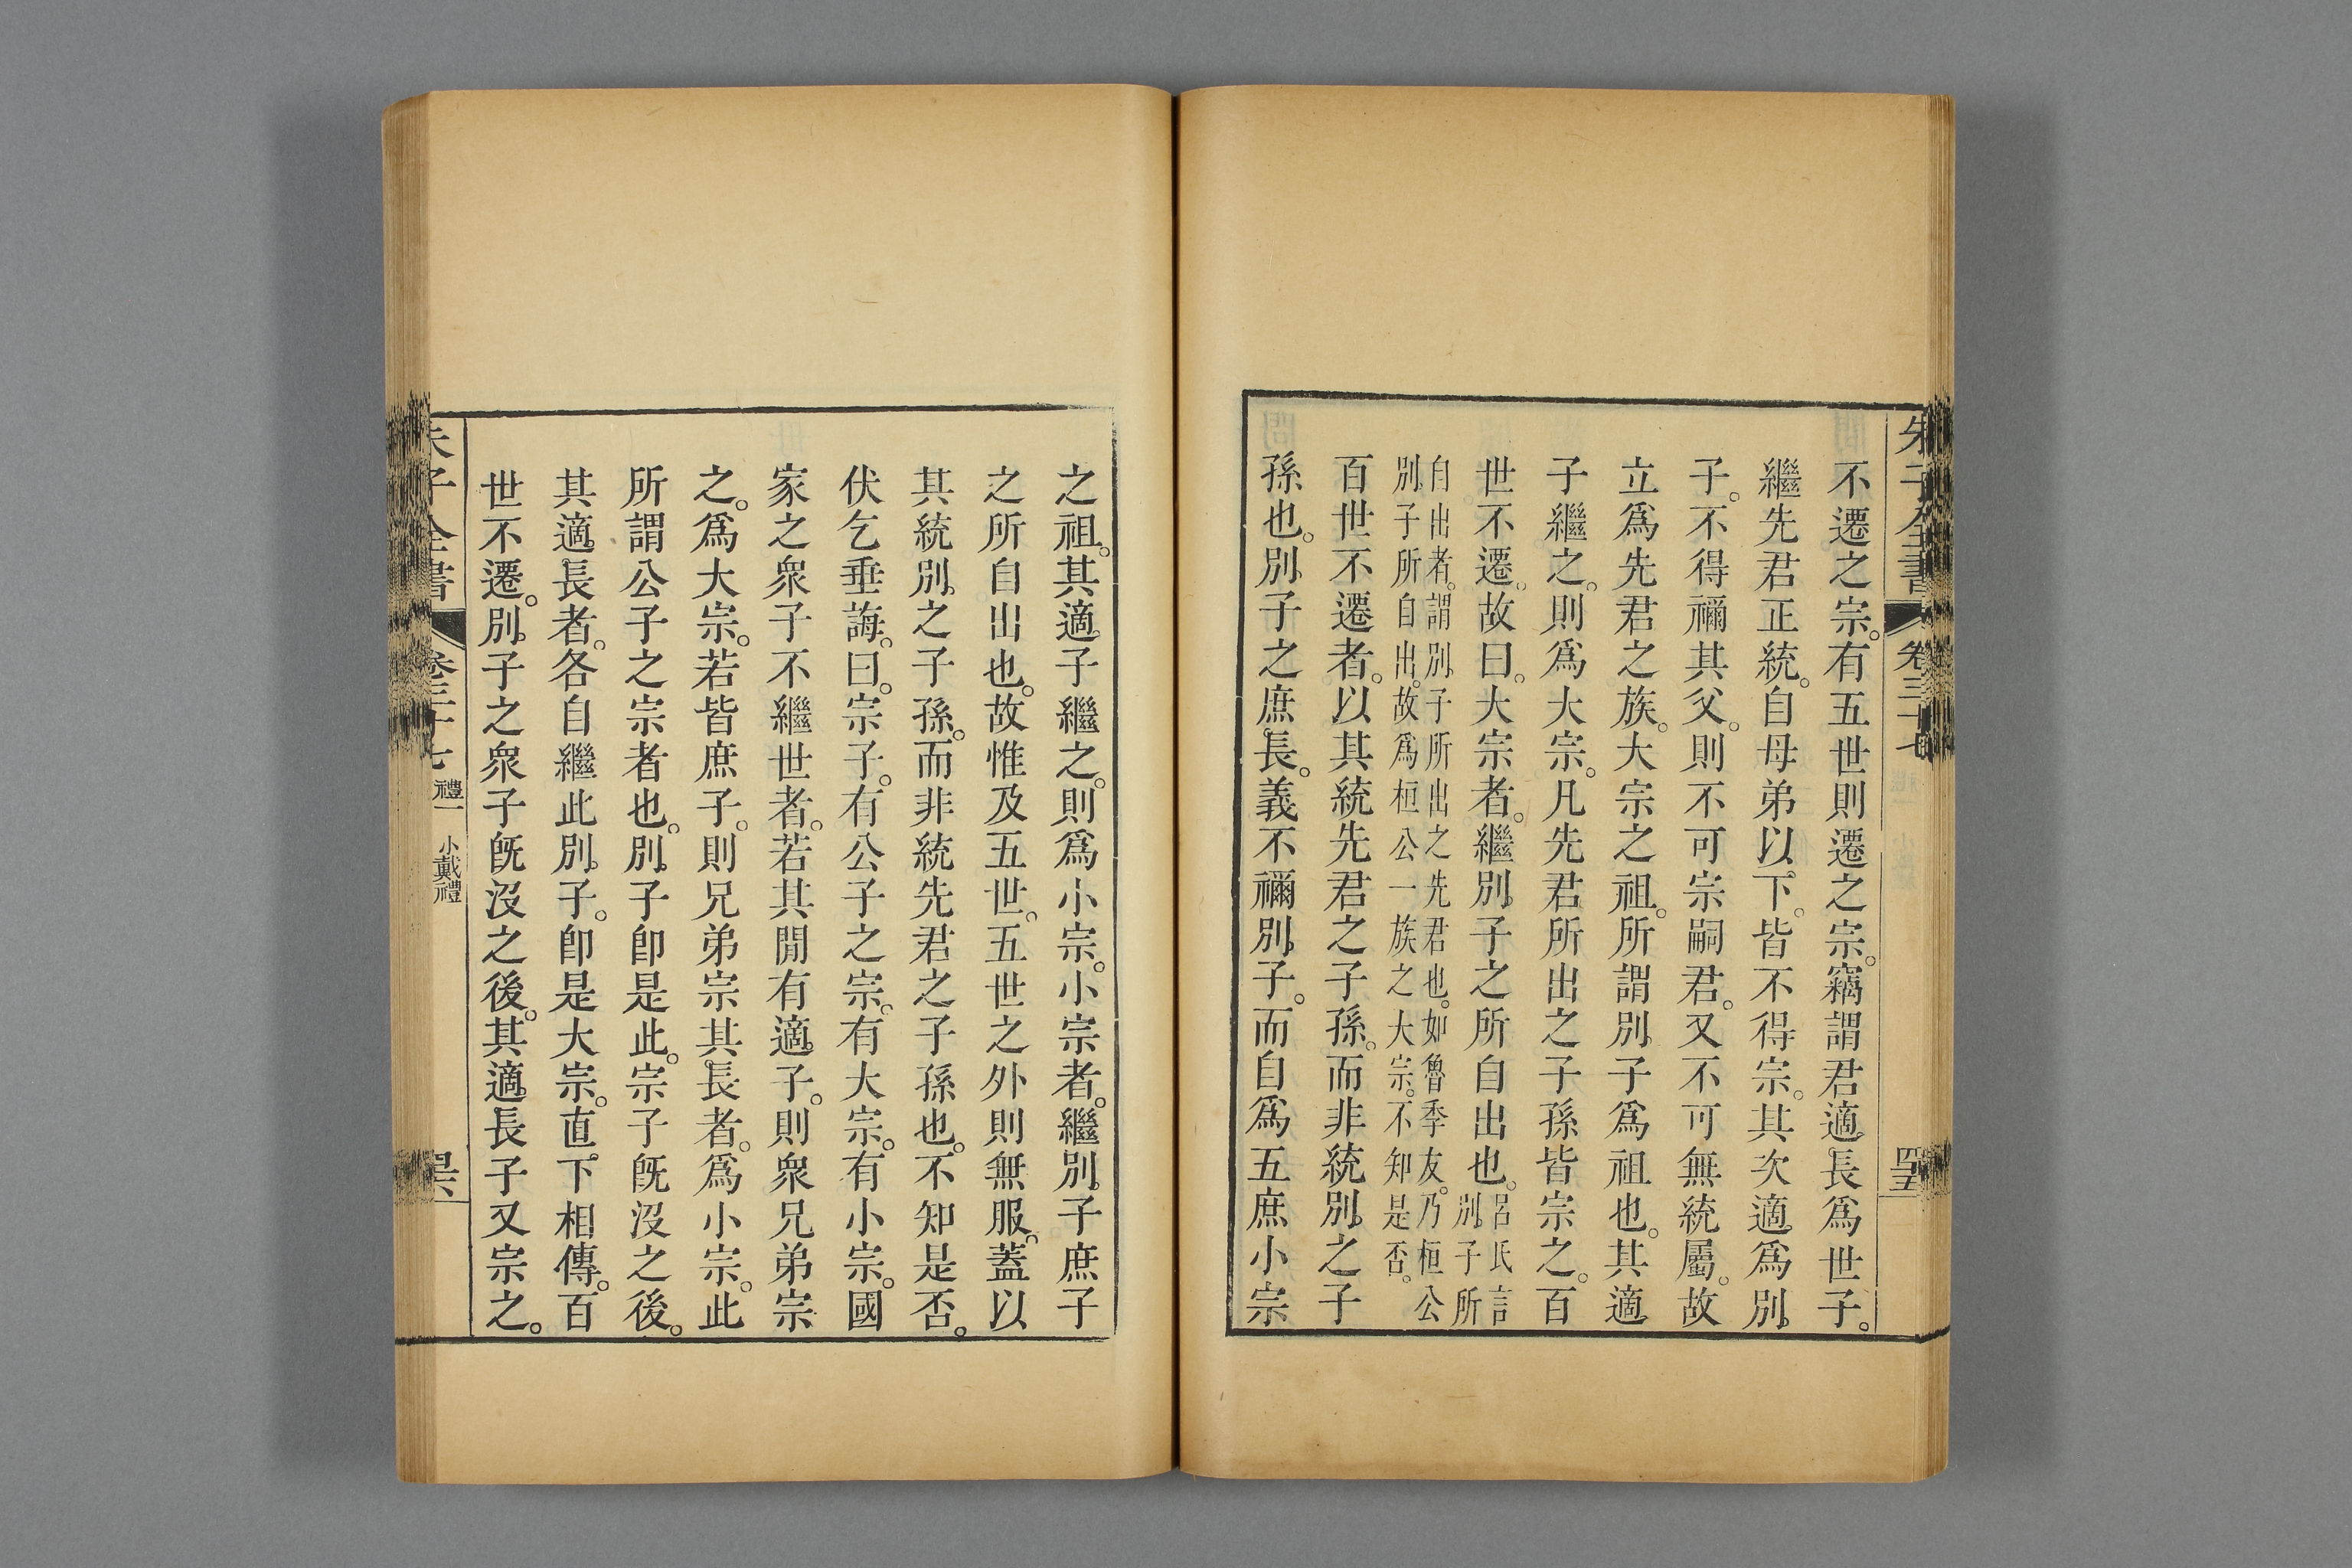 朱子全書 卷三十七 四五
不遷之宗。有五世則遷之宗。竊謂君適長爲世子。
繼先君正統。自母弟以下。皆不得宗。其次適爲別
子。不得禰其父。則不可宗嗣君。又不可無統屬。故
立爲先君之族。大宗之祖。所謂別子爲祖也。其適
子繼之。則爲大宗。凡先君所出之子孫皆宗之。百
世不遷。故曰。大宗者。繼別子之所自出也。呂氏言
別子所
自出者。謂別子所出之先君也。如魯季友。乃桓公
別子所自出。故爲桓公一族之大宗。不知是否。
百世不遷者。以其統先君之子孫。而非統別之子
孫也。別子之庶。長。義不禰別子。而自爲五庶小宗
之祖。其適子繼之。則爲小宗。小宗者。繼別子庶子
之所自出也。故惟及五世。五世之外則無服。蓋以
其統別之子孫。而非統先君之子孫也。不知是否。
伏乞垂誨。曰。宗子。有公子之宗。有大宗。有小宗。國
家之衆子不繼世者。若其閒有適子。則衆兄弟宗
之。爲大宗。若皆庶子。則兄弟宗其長者。爲小宗。此
所謂公子之宗者也。別子卽是此。宗子旣沒之後。
其適長者。各自繼此別子。卽是大宗。直下相傳。百
世不遷。別子之衆子旣沒之後。其適長子又宗之。
朱子全書 卷三十七 禮一 小戴禮 四六